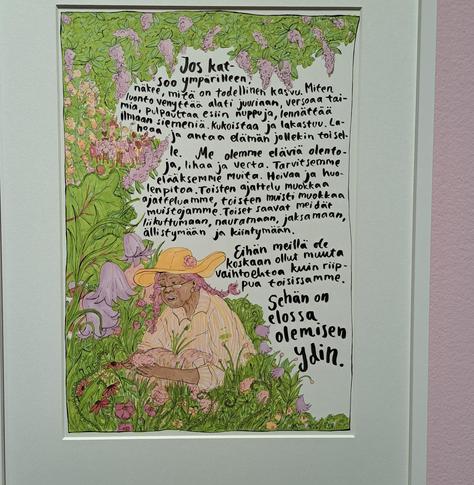 Jos kat-
soo ympärilleen,
näkee, mitä on todellinen kasvu. Miten
luonto venyttää alati juuriaan, versoaa tai-
mia, pulpauttaa esiin nuppuja, lennättää
ilmaan siemeniä. Kukoistaa ja lakastuu. La-
hoaa ja antaa elämän jollekin toisel-
le. Me olemme eläviä olento-
ja, lihaa ja verta. Tarvitsemme
elääksemme muita. Hoivaa ja huo-
lenpitoa. Toisten ajattelu muokkaa
ajatteluamme, toisten muisti muokkaa
muistojamme. Toiset saavat meidät
liikuttumaan, nauramaan, jaksamaan,
ällistymään ja kiintymään.
Eihän meillä ole
koskaan ollut muuta
vaihtoehtoa kuin riip-
pua toisissamme.
Sehän on
elossa
olemisen
ydin.